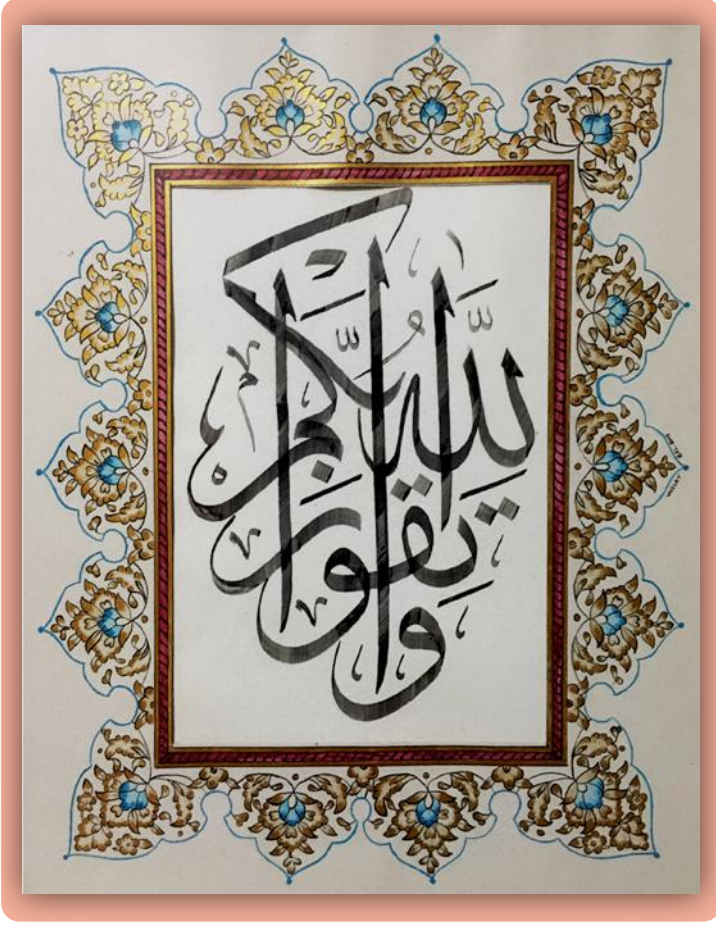 واتقوا الله ربكم